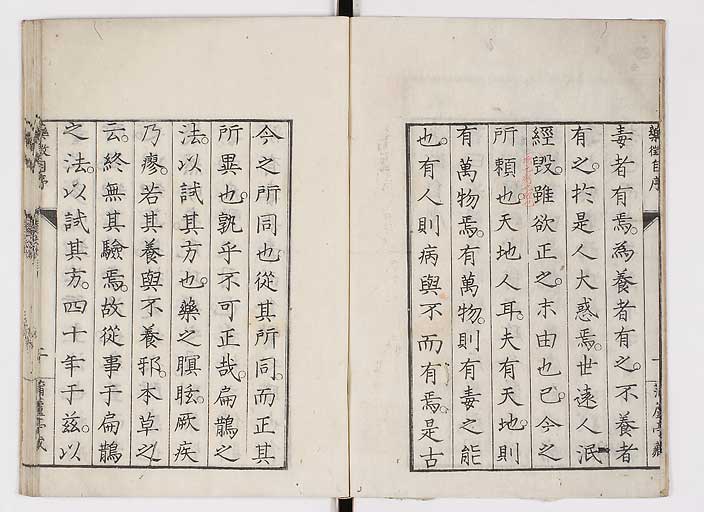 藥徴自序
毒者有焉。爲養者有之。不養者
有之。於是人大惑焉。世遠人泯
經毀。雖欲正之。末由也已。今之
所賴也。天地人耳。夫有天地。則
有萬物焉。有萬物。則有毒之能
也。有人則病與不而有焉。是古
今之所同也。從其所同。而正其
所異也。孰乎不可正哉。扁鵲之
法。以試其方也。藥之瞑眩。厥疾
乃瘳。若其養與不養邪。本草之
云。終無其驗焉。故從事于扁鵲
之法。以試其方。四十年于兹。以